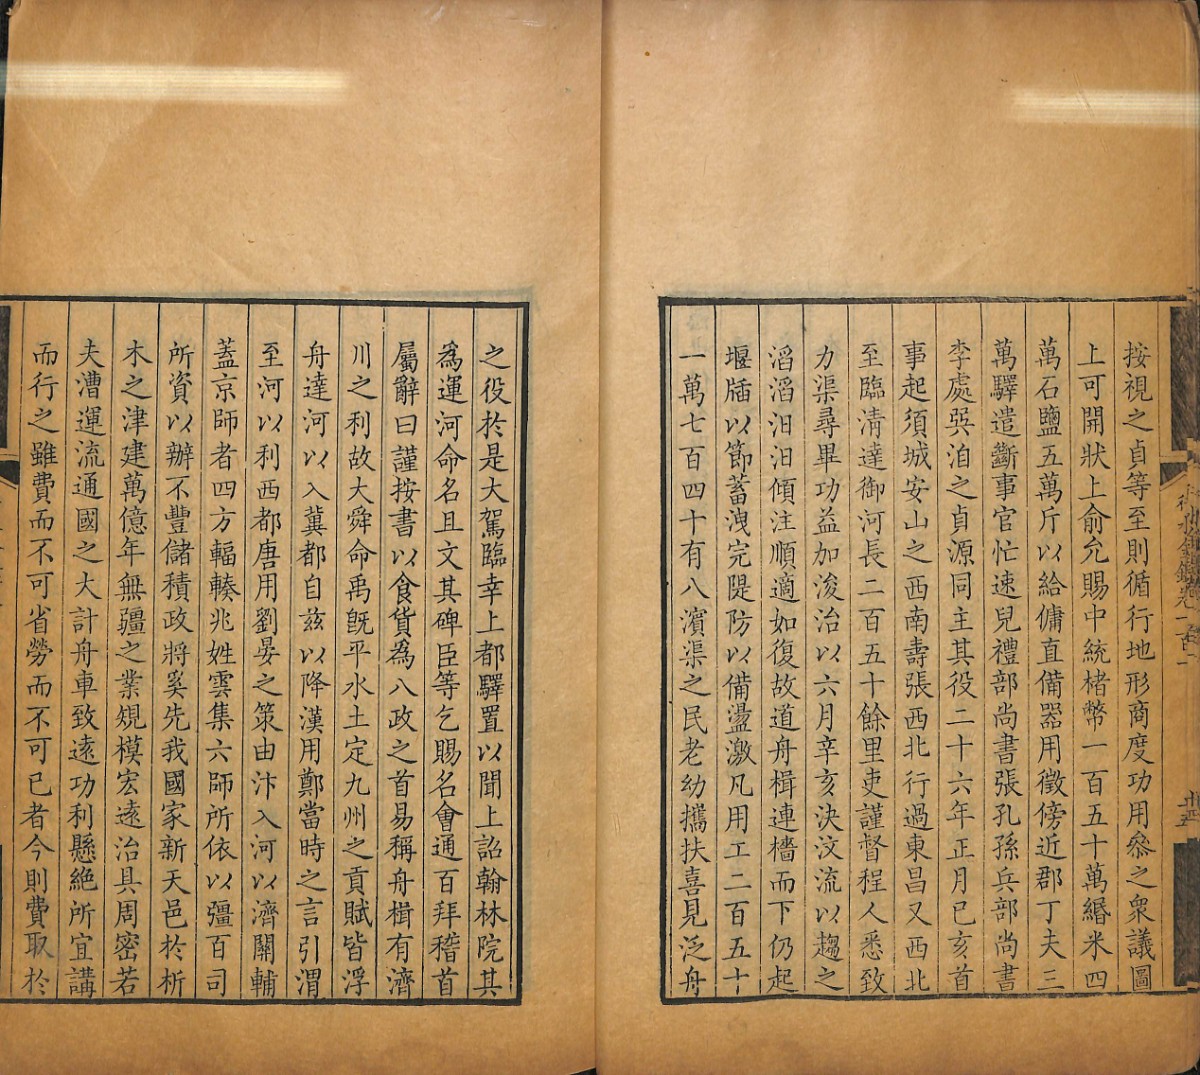 按視之貞等至則循行地形商度功用叅之衆議圖
上可開狀上俞允賜中統楮幣一百五十萬緡米四
萬石鹽五萬斤以給傭直備器用徵傍近郡丁夫三
萬驛遣斷事官忙速兒禮部尚書張孔孫兵部尚書
李處巽洎之貞源同主其役二十六年正月已亥首
事起須城安山之西南壽張西北行過東昌又西北
至臨清達御河長二百五十餘里吏謹督程人悉致
力渠尋畢功益加浚治以六月辛亥決汶流以趨之
滔滔汨汨傾注順適如復故道舟楫連檣而下仍起
堰牐以節蓄洩完隄防以備盪激凡用工二百五十
一萬七百四十有八濱渠之民老幼攜扶喜見泛舟
之役於是大駕臨幸上都驛置以聞上詔翰林院其
為運河命名且文其碑臣等乞賜名會通百拜稽首
屬辭曰謹按書以食貨為八政之首易稱舟楫有濟
川之利故大舜命禹旣平水土定九州之貢賦皆浮
舟達河以入冀都自茲以降漢用鄭當時之言引渭
至河以利西都唐用劉晏之策由汴入河以濟關輔
蓋京師者四方輻輳兆姓雲集六師所依以彊百司
所資以辦不豐儲積政將奚先我國家新天邑於析
木之津建萬億年無疆之業規模宏遠治具周密若
夫漕運流通國之大計舟車致遠功利懸絶所宜講
而行之雖費而不可省勞而不可已者今則費取於
行水金鑑卷一百二